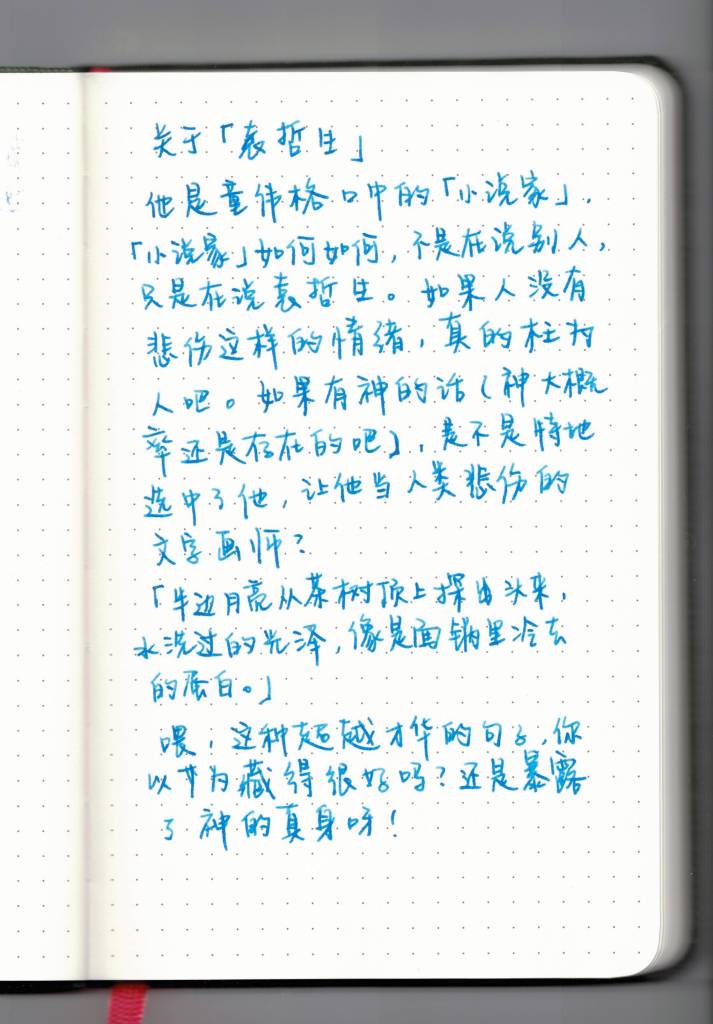 关于「袁哲生」
他是童伟格口中的「小说家」.
「小说家」如何如何,不是在说别人,
只是在说袁哲生。如果人没有
悲伤这样的情绪,真的枉为
人吧。如果有神的话(神大概
率还是存在的吧),是不是特地
选中了他,让他当人类悲伤的
文字画师?
「半边月亮从茶树顶上探出头来,
水洗过的光泽,像是面锅里冷去
的蛋白。」
喂,这种超越才华的句子,你
以为藏得很好吗?还是暴露
了神的真身呀!